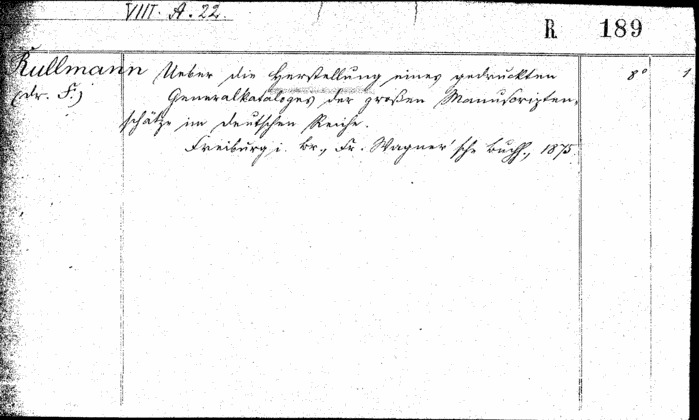 VIII. A. 22.
R 189
Kullmann Ueber die Herstellung eines gedruckten 8° 1
(Dr. F.) Generalkataloges der großen Manuscripten-
schätze im deutschen Reiche.
Freiburg i. Br., Fr. Wagner'sche Buchh., 1875.